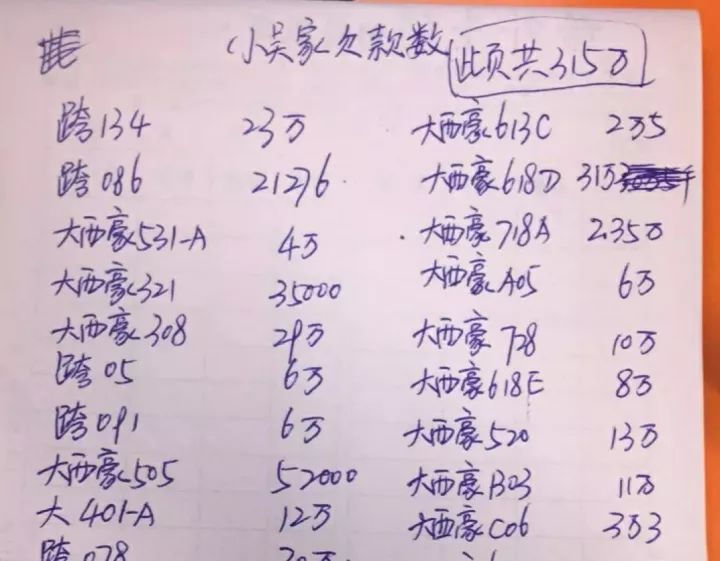 小吴家欠款数 此页共315万
跨134 23万 大西豪613C 2万5
跨086 21276. 大西豪618D 31万
大西豪531-A 4万 大西豪718A 2.35万
大西豪321 35000 大西豪A05 6万
大西豪308 29万 大西豪728 10万
跨05 6万 大西豪618E 8万
跨091 6万 大西豪520 13万
大西豪505 52000 大西豪B03 11万
大401-A 12万 大西豪C06 3万3
跨078